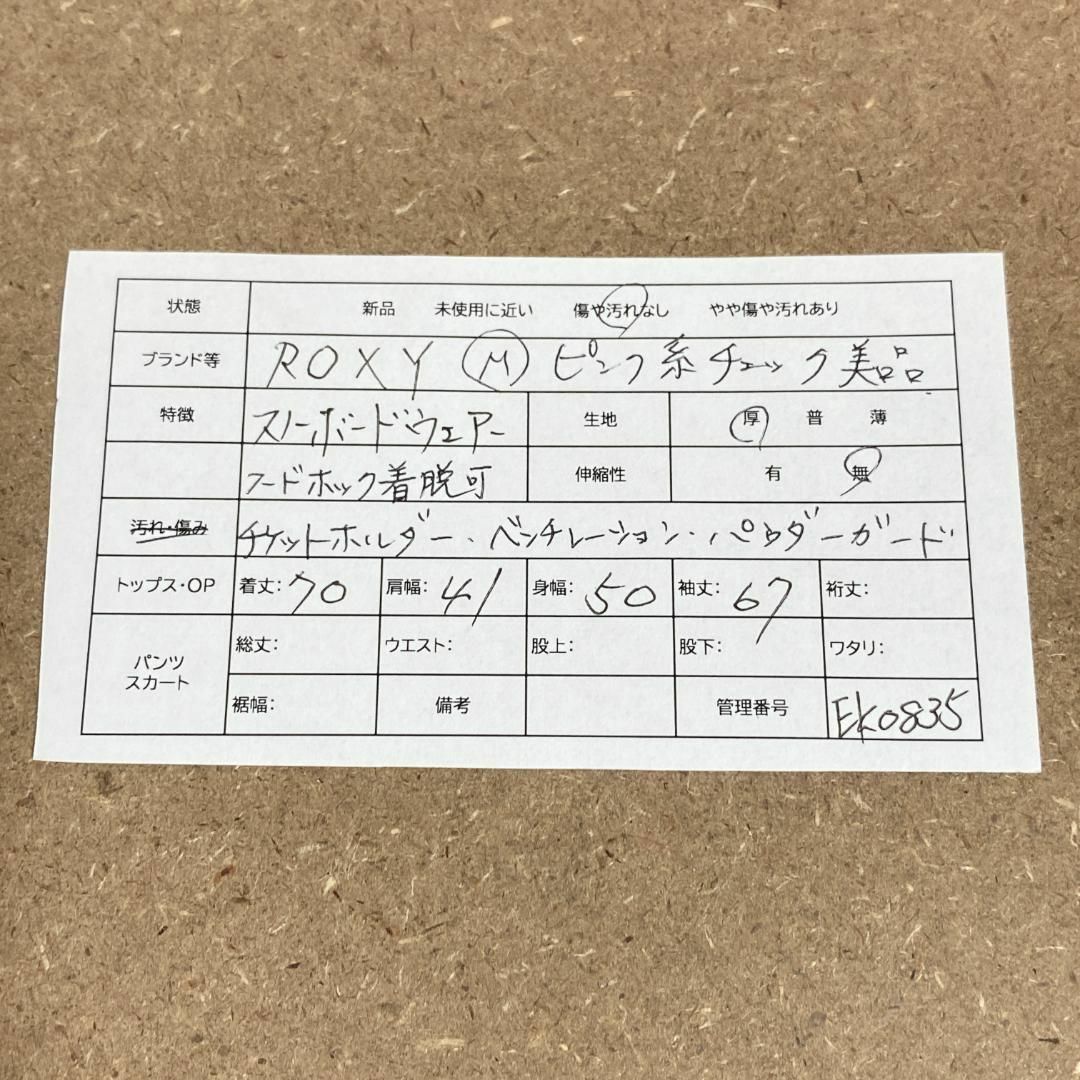 状態 新品 未使用に近い 傷や汚れなし やや傷や汚れあり
ブランド等 ROXY M ピンク系チェック美品
特徴 スノーボードウェアー 生地 厚 普 薄
フードホック着脱可 伸縮性 有 無
汚れ・傷み チケットホルダー・ベンチレーション・パウダーガード
トップス・OP 着丈: 70 肩幅: 41 身幅: 50 袖丈: 67 裄丈:
パンツ スカート 総丈: ウエスト: 股上: 股下: ワタリ:
裾幅: 備考 管理番号 EK0835